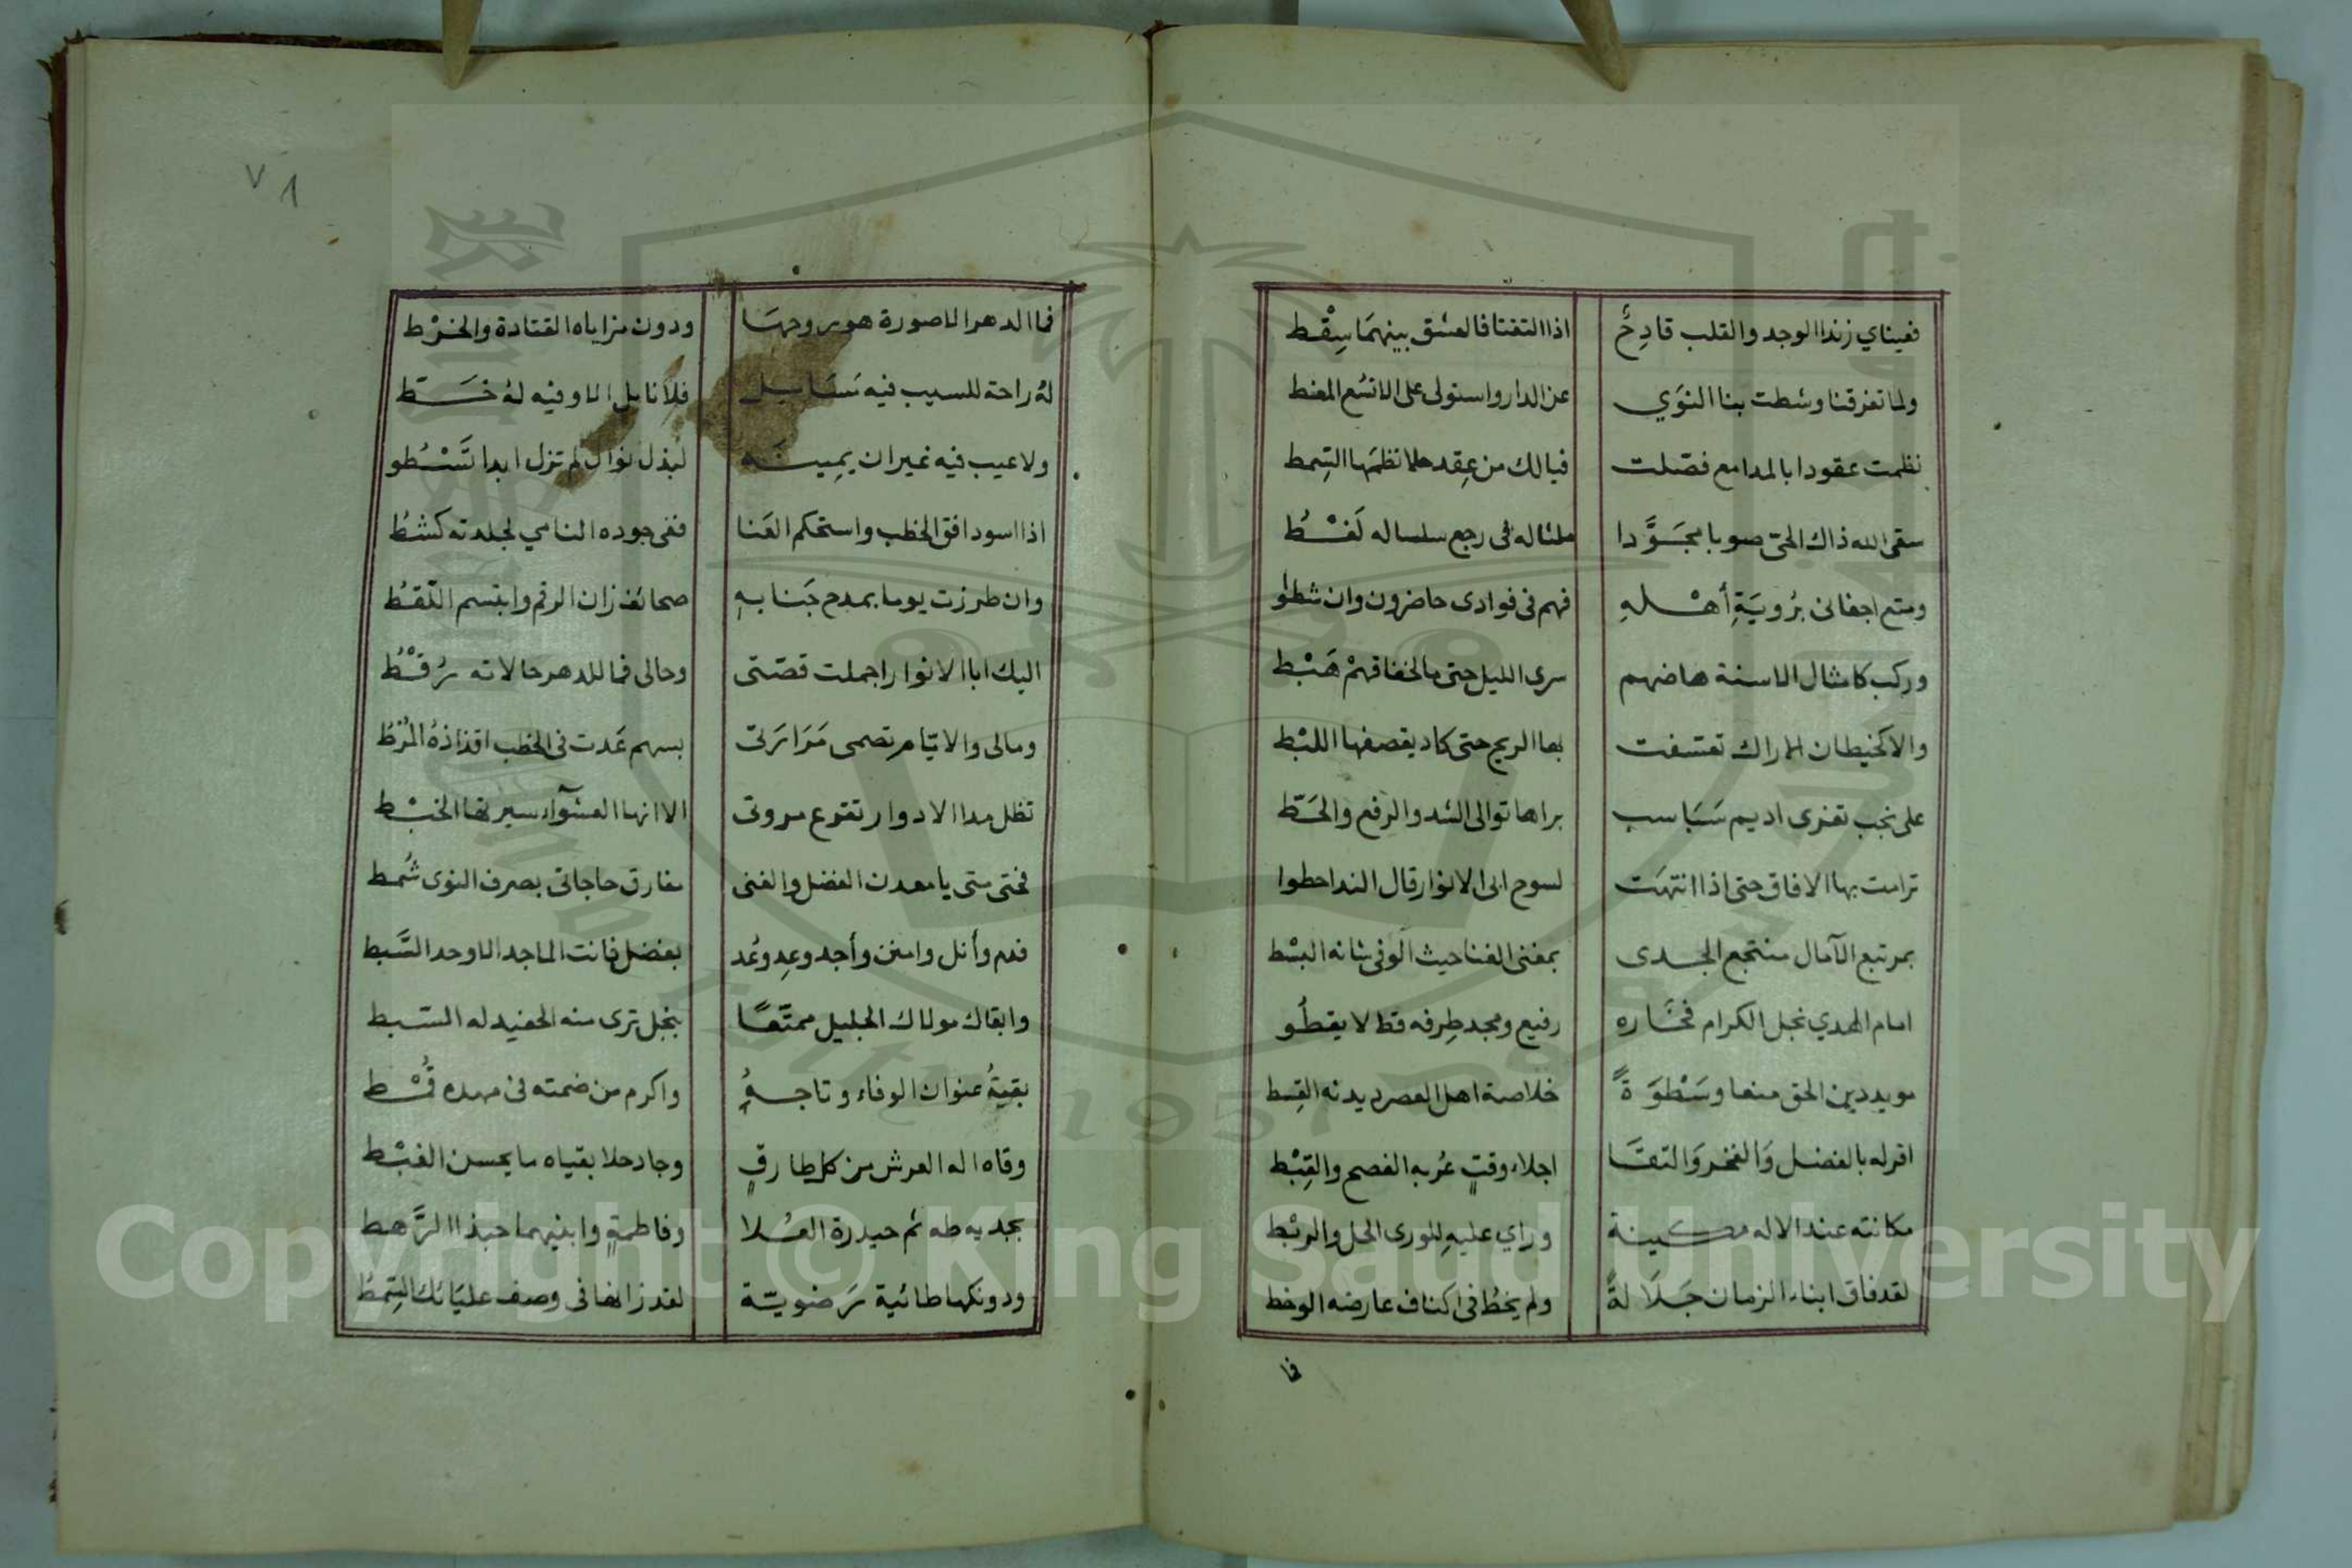 فعيناي زندا الوجد والقلب قادِحُ اذا التقتا فالعشق بينهمَا سِقْط
ولما تفرقنا وشطت بنا النوَي عن الدار واستولى على الانسُع المغط
نظمت عقودا بالمدامع فصّلت فيالك من عِقد حلا نظمَها السِمط
سقى الله ذاك الحيّ صوبا مجَوَّدا ملثا له فى رجع سلساله لَغْطُ
ومتع اجفانى برُويَةِ أهْلهِ فهم فى فوادى حاضرون وان شطوا
وركب كامثال الاسنة هاضهم سرى الليل حتى مالخفاقهمْ هَبْط
والا كخيطان الاراك تعسفت بها الريح حتى كاد يقصفها اللبْط
على نجب تفرى اديم سَبَاسب براها توالى الشد والرفع والحَطّ
ترامت بها الافاق حتى اذا انتهَت لسوح ابى الانوار قال الندا حطوا
بمرتبع الآمال منتجع الجدى بمغنى الغنا حيث الوفى شانه البسْط
امام الهدي نجل الكرام فخَاره رفيع ومجد طِرفه قط لا يقطُو
مويد دين الحق منعا وسَطْوَةً خلاصة اهل العصر ديدنه القِسط
اقر له بالفضل وَالفخر وَالتقَا اجلاء وقتٍ عُربه الفصح والقِبْط
مكانته عند الاله مكينة وراي عليهِ للورى الحل والربْط
لقد فاق ابناء الزمان جَلَالةً ولم يخطُ فى اكناف عارضه الوخط
فما
٧١
فما الدهر الا صورة هو روحهَا ودون مزاياه القتادة والخرْط
لهُ راحة للسيب فيه ودون فلا نايل الا وفيه لهُ خَطّ
ولا عيب فيه غير ان يمِينَه لبذل نوال لم تزل ابدا تَسْطو
اذا اسود افق الخطب واستحكم العَنا ففى جوده النامي لجلدته كشطُ
وان طرزت يوما بمدح جَنابهِ صحائف زان الرقم وابتسم النّقطُ
اليك ابا الانوار اجملت قصّتى وحالى فما للدهر حالاته رُقْطُ
ومالى والايّام تصمى مَرَارَتى بسهم غَدت فى الخطب اقذاذهُ المُرْطُ
تظل مدا الادوار تقرع مروتى الا انها العشوآء سيرتها الخبْط
فحتى متى يا معدن الفضل والغنى مفارق حاجاتى بصرف النوى شُمط
فدم وأنل وامنن وأجد وعِد وعُد بفضل فانت الماجد الاوحد السَّبط
وابقاك مولاك الجليل ممتّعًا بنجل ترى منه الحفيد له السّبط
بقيةُ عنوان الوفاء وتاجهُ واكرم من ضمته فى مهده قُمْط
وقاه اله العرش من كل طارقٍ وجاد حلا بقياه ما يحسن الغبْط
بجديه طه ثم حيدرة العُلا وفاطمةٍ وابنيهما حبذا الرَّهط
ودونكها طائية رَضويّة لقد زانها فى وصف عليَائك السِمطُ
Copyright © King Saud University
1957